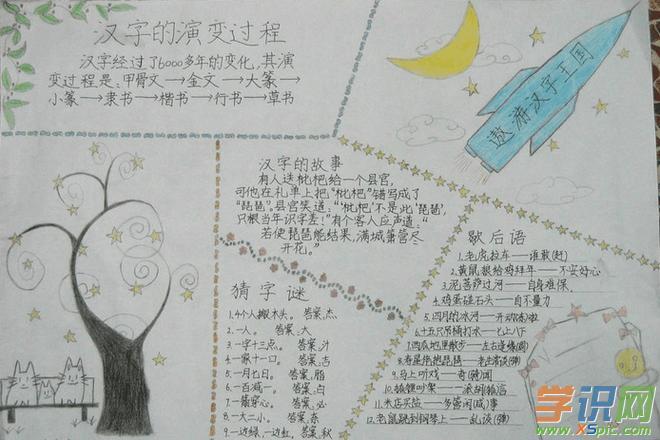 汉字的演变过程
汉字经过了6000多年的变化,其演
变过程是:甲骨文→金文→大篆→
小篆→隶书→楷书→行书→草书
遨游汉字王国
汉字的故事
有人送枇杷给一个县官,
可他在礼单上把"枇杷"错写成了
"琵琶",县官笑道:"'枇杷'不是此'琵琶',
只恨当年识字差!"有个客人应声道:"
若使琵琶能结果,满城箫管尽
开花。"
猜字谜
1.4个人搬木头。 答案,杰
2.一人。 答案,大
3.一字十三点。 答案,汁
4.一家十一口。 答案,吉
5.一月七日。 答案,脂
6.一百减一。 答案,白
7.一箭穿心。 答案,必
8.一大二小。 答案,奈
9.一边绿,一边红, 答案,秋
歇后语
1.老虎拉车——谁敢(赶)
2.黄鼠狼给鸡拜年——不安好心
3.泥菩萨过河——自身难保
4.鸡蛋碰石头——自不量力
5.四月的冰河——开动(冻)啦
6.十五只吊桶打水——七上八下
7.西瓜地里散步——左右逢缘(圆)
8.寿星弹琵琶——老生常谈(弹)
9.马上听戏——奇(骑)闻
10.狐狸吵架——一派胡(狐)言
11.米店卖盐——多管闲(咸)事
12.老鼠跳到钢琴上——乱谈(弹)
学识网
www.XSpic.com